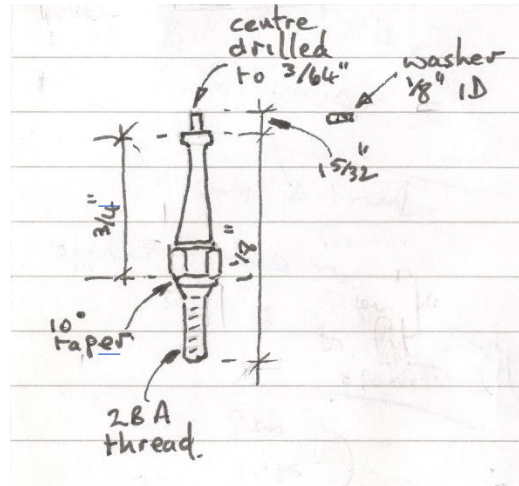 centre
drilled
to 3/64"
washer
1/8" ID
1 5/32"
3/4"
1 1/8"
10°
taper
2BA
thread.